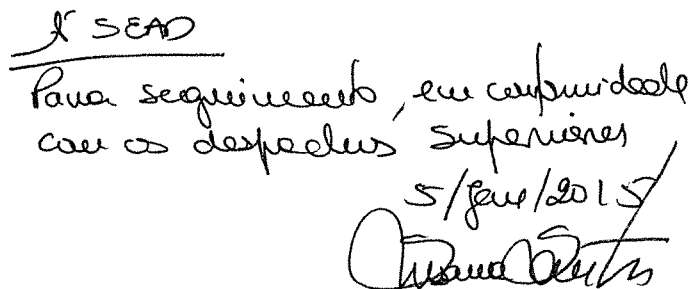 À SEAD
Para seguimento, em conformidade
com os despachos superiores
5/Jan/2015